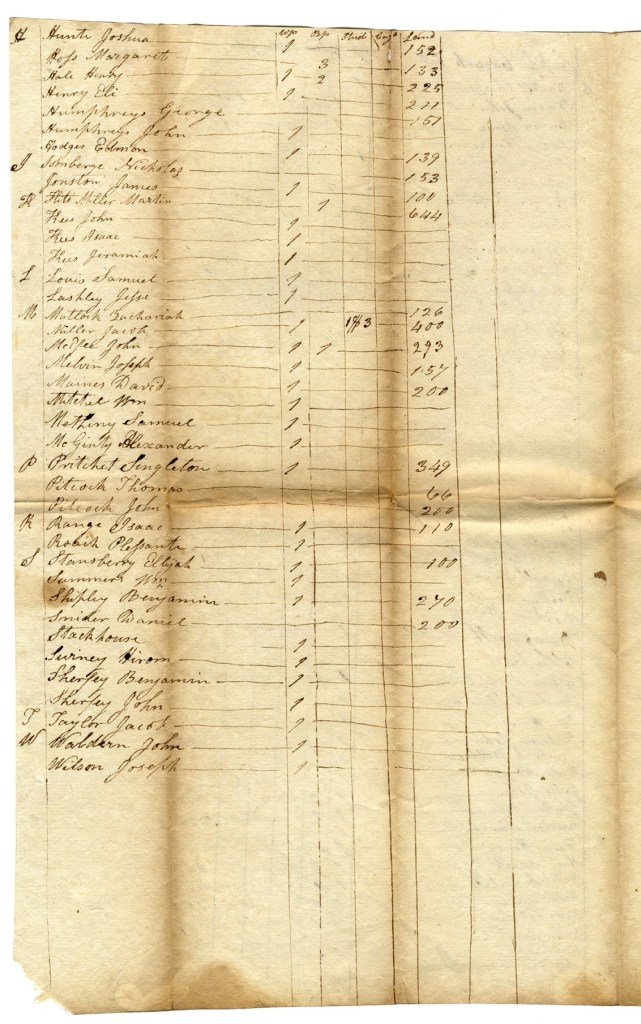 WP BP Stud Cags Land
H Hunte Joshua 1 152
Hoss Margaret 3 133
Hale Henry 1 2 225
Henry Eli 1 211
Humphreys George 151
Humphreys John 1
Hodges Edmon 1 139
I Isenberge Nicholas 153
Jonston James 1 100
K Hits Miller Martin 1 644
Kees John 1
Kees Isaac 1
Kees Jeramiah 1
L Louis Samuel 1
Lashley Jesse 1
M Matlock Zachariah 126
Miller Jacob 1 1$3 400
McFee John 1 1 293
Melvin Joseph 1 157
Maines David 1 200
Mitchel Wm 1
Metheny Samuel 1
McGinty Alexander 1
P Pritchet Singleton 1 349
Pitcock Thomas 66
Pitcock John 200
R Range Isaac 1 110
Roach Plessante 1
S Stansberry Elijah 1 100
Summers Wm 1
Shipley Benjamin 1 270
Snider Daniel 200
Stackhouse 1
Swiney Hirom 1
Sherfey Benjamin 1
Sherfey John 1
T Taylor Jacob 1
W Waldern John 1
Wilson Joseph 1